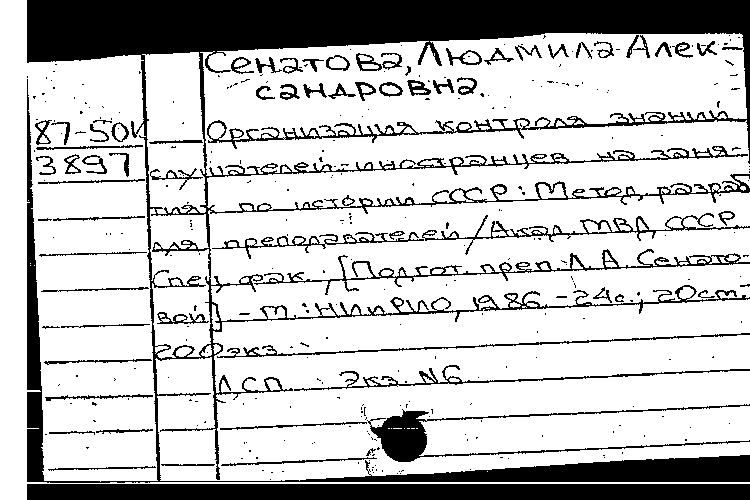 Сенатова, Людмила Алек-
сандровна.
87-50К Организация контроля знаний
3897 слушателей-иностранцев на заня-
тиях по истории СССР: Метод. разраб
для преподавателей / Акад. МВД СССР.
Спец. фак.; [Подгот. преп. Л. А. Сенато-
вой] - М.: НИиРИО, 1986. - 24с.; 20см.
200экз.
Экз. N6